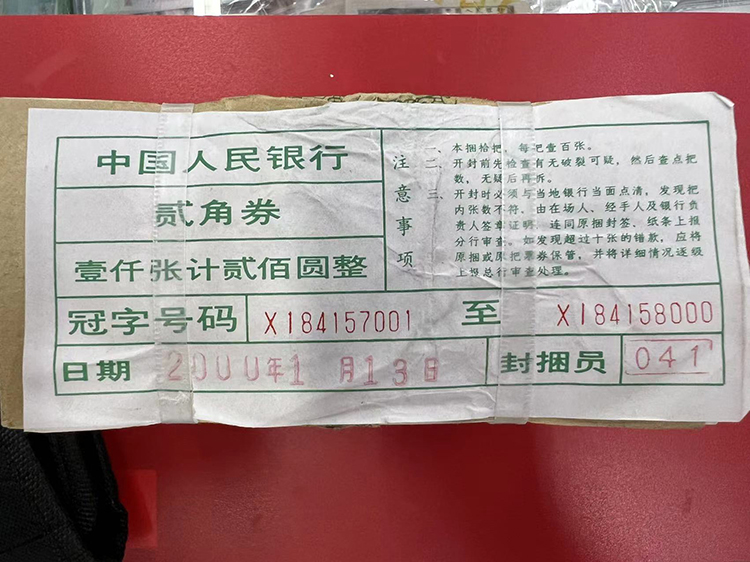 中国人民银行
贰角券
壹仟张计贰佰圆整
注意事项
一、本捆拾把，每把壹百张。
二、开封前先检查有无破裂可疑，然后查点把
数，无疑后再拆。
三、开封时必须与当地银行当面点清，发现把
内张数不符，由在场人、经手人及银行负
责人签章证明，连同原捆封签、纸条上报
分行审查。如发现超过十张的错款，应将
原捆或原把票券保管，并将详细情况逐级
上报总行审查处理。
冠字号码 X184157001 至 X184158000
日期 2000年1月13日 封捆员 041